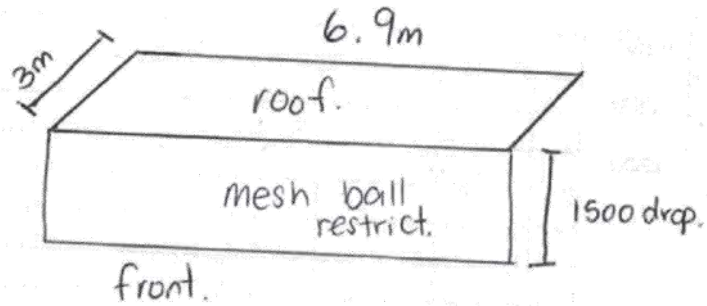 6.9m
3m
roof.
mesh ball
restrict.
1500 drop.
front.